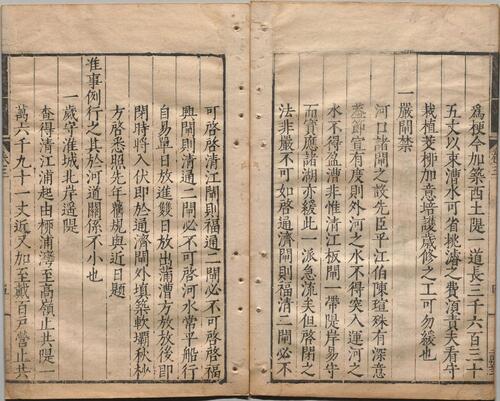 為梗今加築西土隄一道長三千六百三十
五丈以束漕水可省挑濬之費須責夫看守
栽植茭柳加意培護歲修之工可勿緩也
一嚴閘禁
河口諸閘之設先臣平江伯陳瑄殊有深意
蓋節宣有度則外河之水不得突入運河之
水不得盈漕非惟清江板閘一帶隄岸易守
而寶應諸湖亦緩此一派急流矣但啓閉之
法非嚴不可如啓通濟閘則福清二閘必不
可啓啓清江閘則福通二閘必不可啓啓福
興閘則清通二閘必不可啓河水常平船行
自易單日放進雙日放出蒲漕方放放後即
閉時將入伏即於通濟閘外填築軟壩秋杪
方啓悉照先年舊規與近日題
准事例行之其於河道關係不小也
一歲守淮城北岸遙隄
查得清江浦起由柳浦灣至高嶺止共隄一
萬六千九十一丈近又加至戴百戶營止共